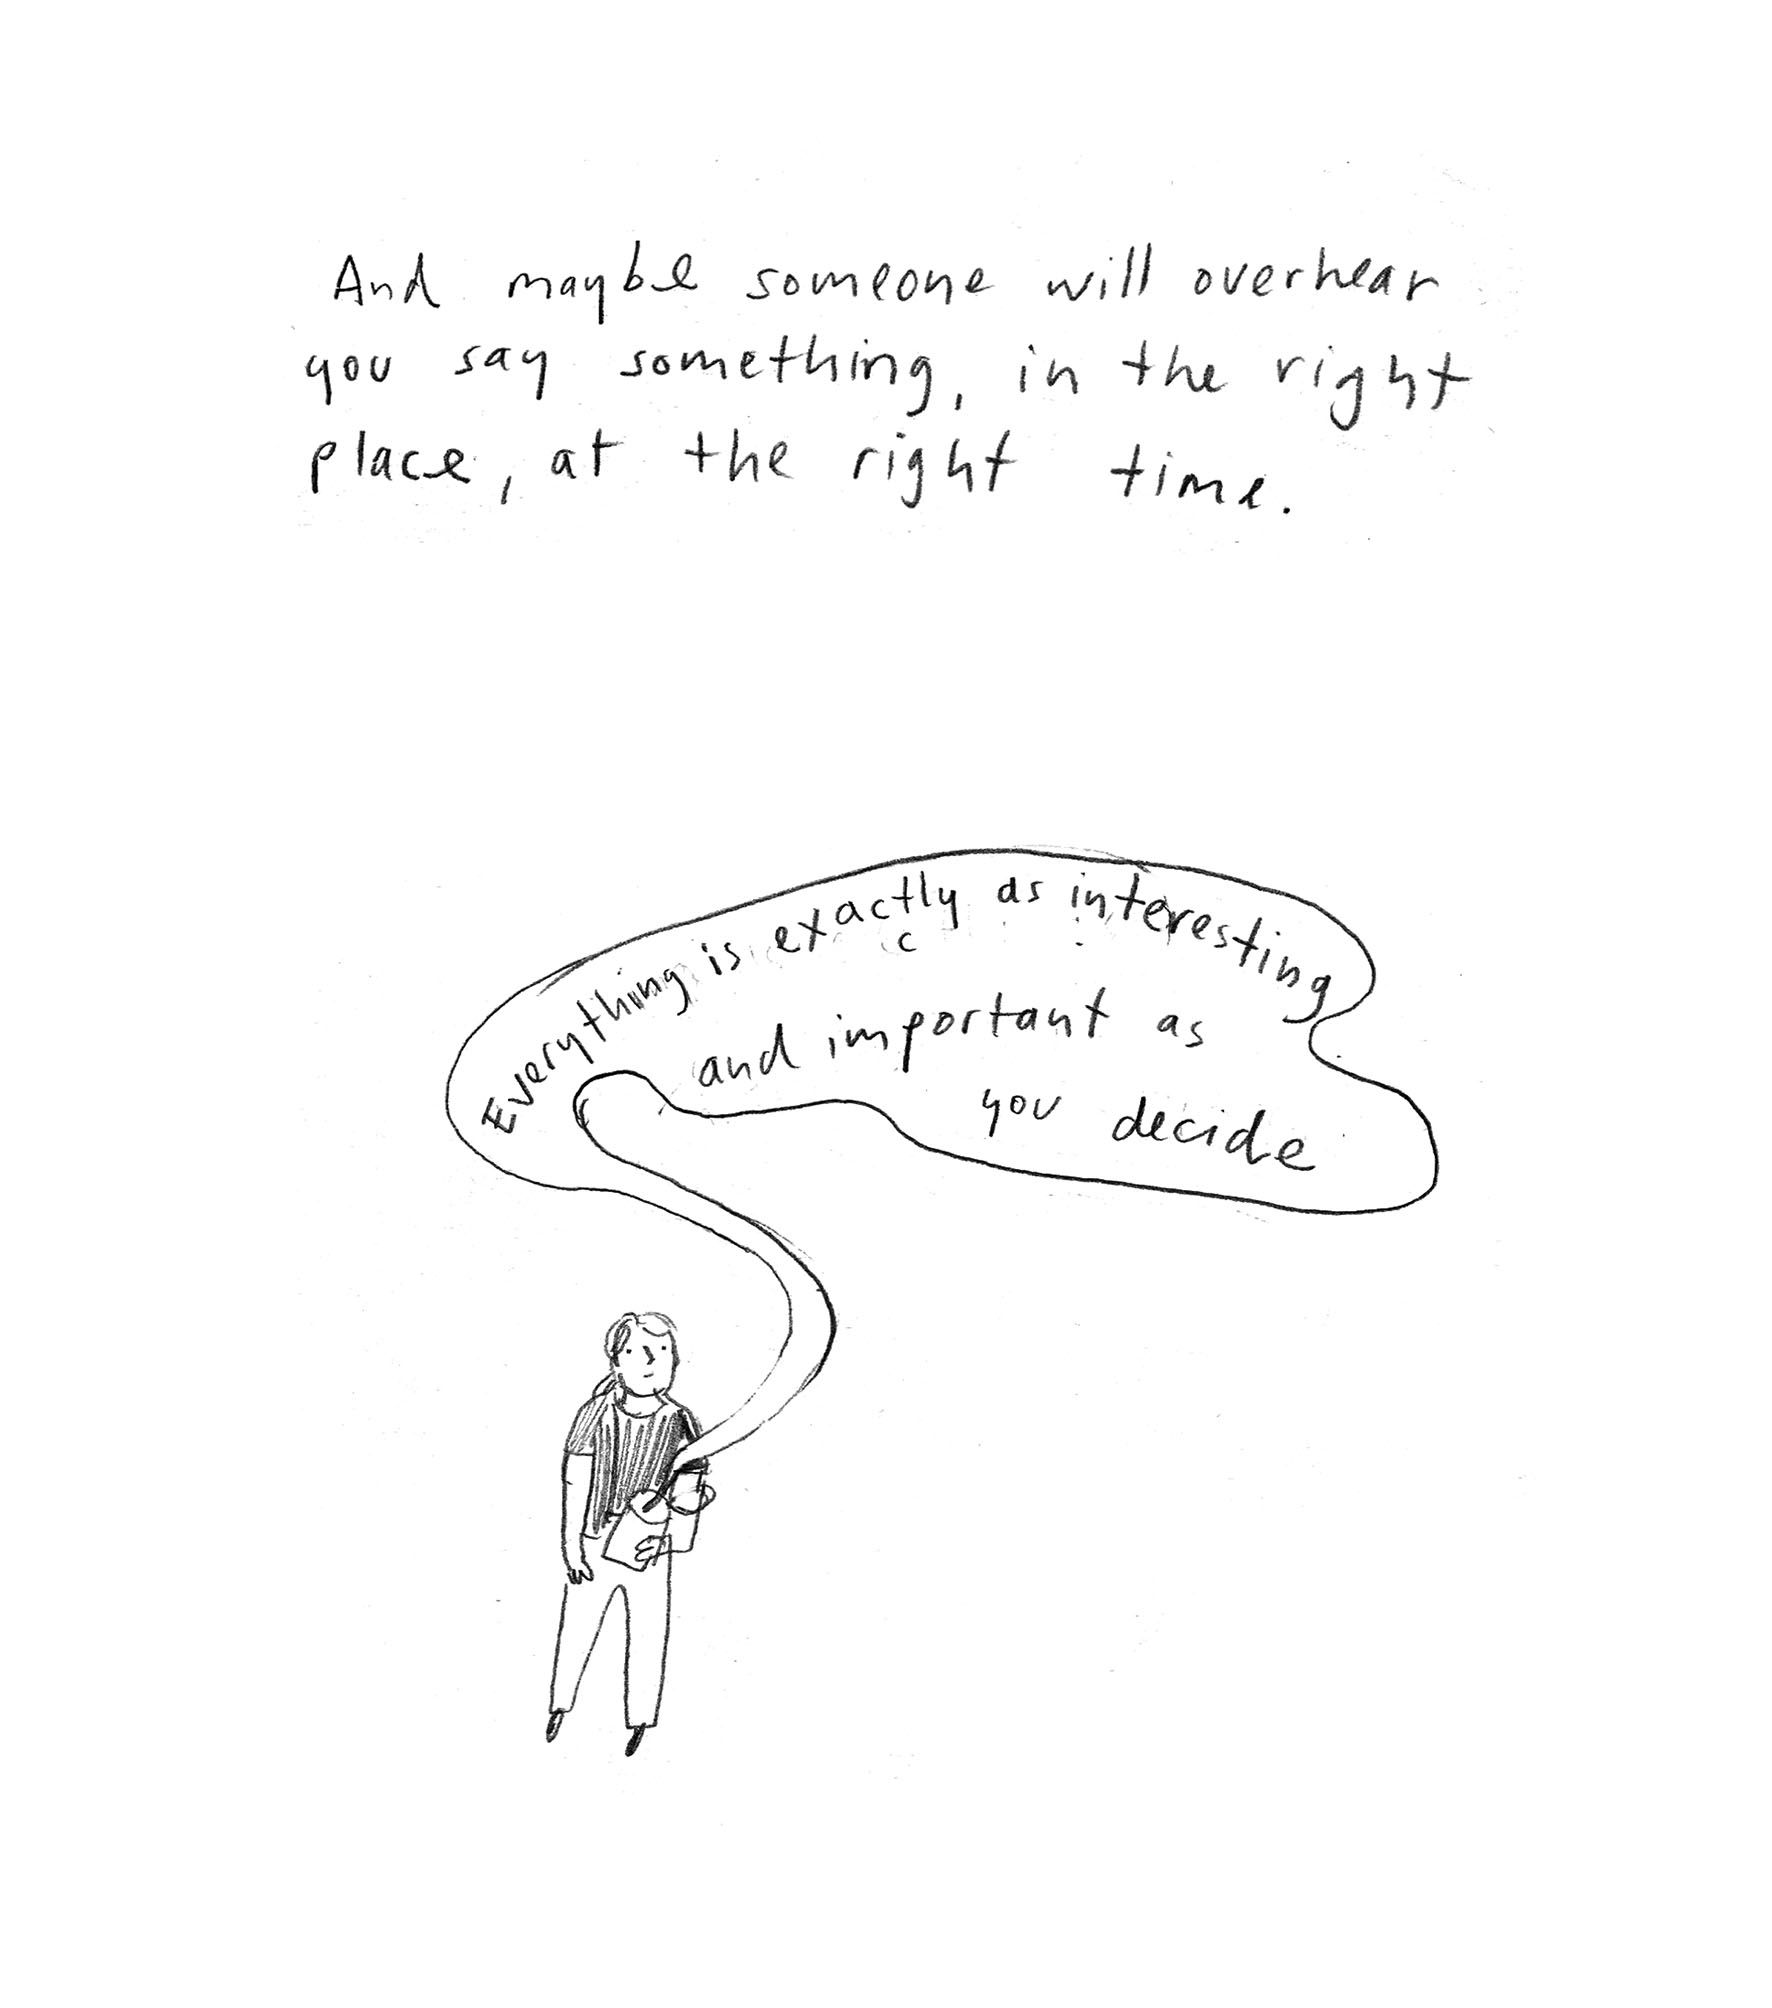 And maybe someone will overhear
you say something, in the right
place, at the right time.
Everything is exactly as interesting
and important as
you decide